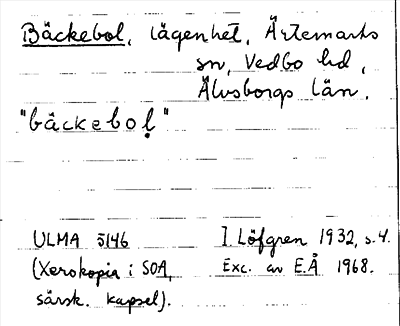 Bäckebol, lägenhet, Ärtemarks
sn, Vedbo hd,
Älvsborgs län.
"bäckeboḷ"
ULMA 5146 I. Löfgren 1932, s. 4.
(Xerokopia i SOA, Exc. av E.Å 1968.
särsk. kapsel).